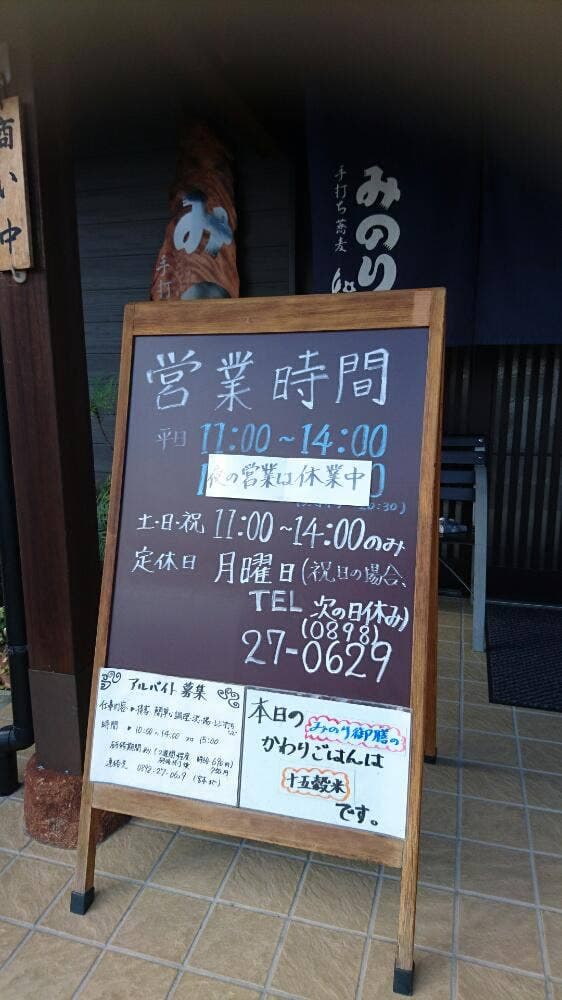 商い中
み
手打
手打ち蕎麦
みのり
営業時間
平日 11:00～14:00
夜の営業は休業中
土・日・祝 11:00～14:00のみ
定休日 月曜日(祝日の場合、
次の日休み)
TEL (0898)
27-0629
アルバイト募集
仕事内容 ▶ 接客、簡単な調理、洗い場・レジ打ち
時間 ▶ 10:00～14:00 or 15:00
連絡先 0898-27-0629
本日の みのり御膳の
かわりごはんは
十五穀米
です。